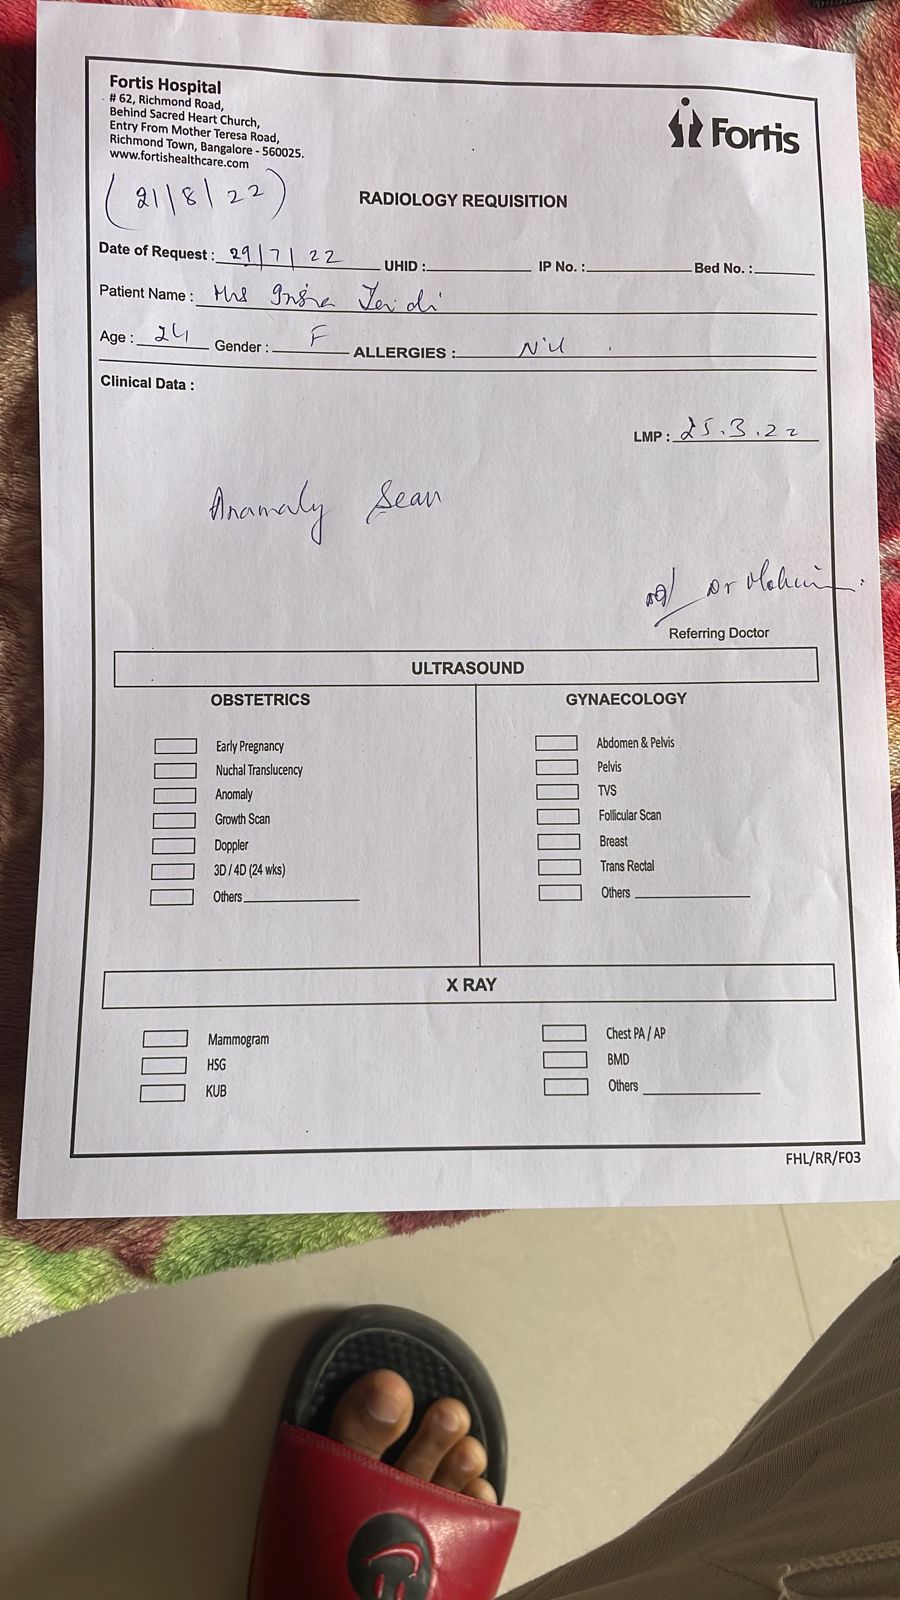 Fortis Hospital
# 62, Richmond Road,
Behind Sacred Heart Church,
Entry From Mother Teresa Road,
Richmond Town, Bangalore - 560025.
www.fortishealthcare.com
Fortis
(21/8/22)
RADIOLOGY REQUISITION
Date of Request : 29/7/22 UHID : IP No. : Bed No. :
Patient Name : Mrs
Age : 24 Gender : F ALLERGIES : Nil
Clinical Data :
LMP : 25.3.22
Anamaly Scan
Dr
Referring Doctor
ULTRASOUND
OBSTETRICS
Early Pregnancy
Nuchal Translucency
Anomaly
Growth Scan
Doppler
3D / 4D (24 wks)
Others
GYNAECOLOGY
Abdomen & Pelvis
Pelvis
TVS
Follicular Scan
Breast
Trans Rectal
Others
X RAY
Mammogram
HSG
KUB
Chest PA / AP
BMD
Others
FHL/RR/F03